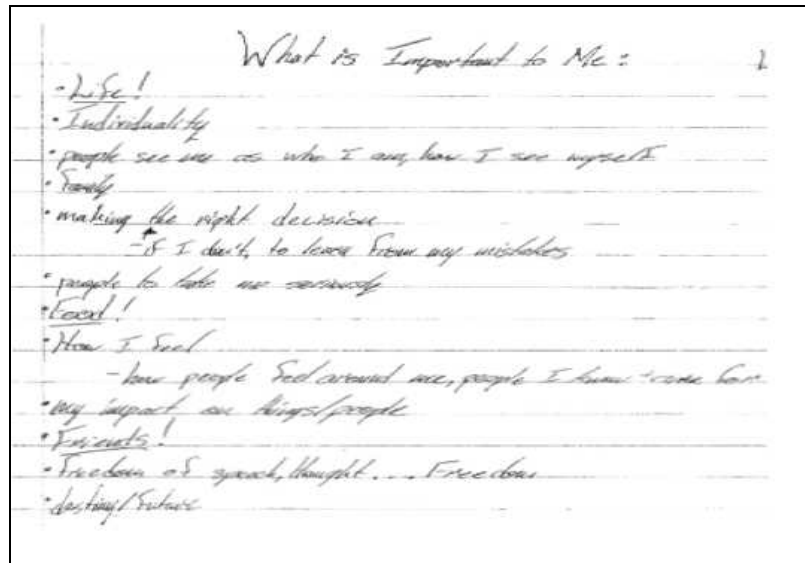 What is Important to Me: 1
• Life!
• Individuality
• people see me as who I am, how I see myself
• family
• making the right decision
- if I don't, to learn from my mistakes
• people to take me seriously
• Food!
• How I feel
- how people feel around me, people I know
• my impact on things/people
• Friends!
• Freedom of speech, thought.... Freedom
• destiny/future